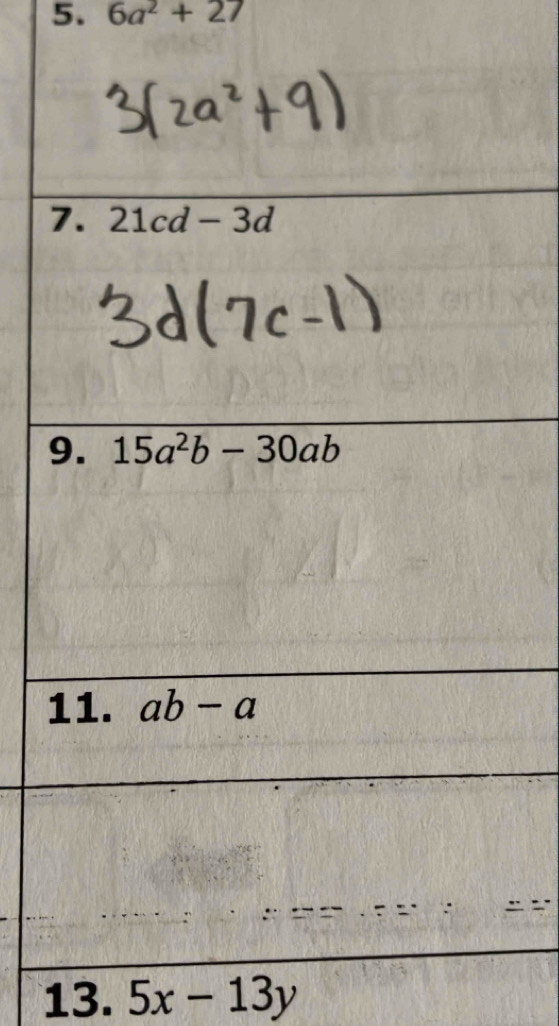 5. 6a² + 27
3(2a²+9)
7. 21cd − 3d
3d(7c-1)
9. 15a²b − 30ab
11. ab − a
13. 5x − 13y